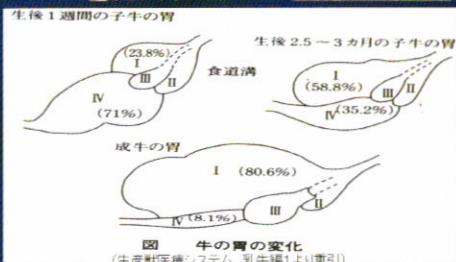 生後1週間の子牛の胃
(23.8%)
I
III
II
IV
(71%)
食道溝
生後2.5～3ヵ月の子牛の胃
I
(58.8%)
III
II
IV(35.2%)
成牛の胃
I (80.6%)
IV(8.1%)
III
II
図 牛の胃の変化
(生産獣医療システム 乳牛編1より重引)